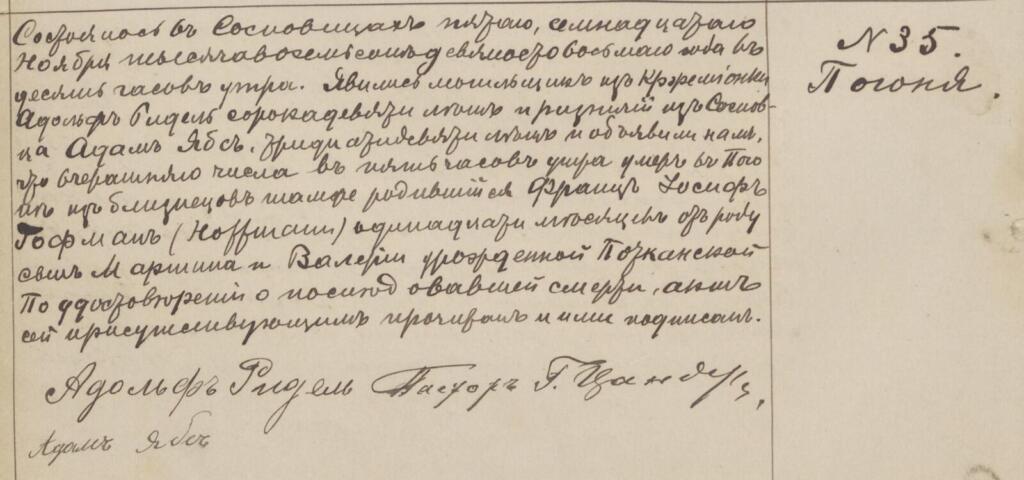 Состоялось въ Сосновицахъ пятаго, семнадцатаго
Ноября тысяча восемьсотъ девяносто восьмаго года въ
десять часовъ утра. Явились могильщикъ изъ
Адольфъ Ридель сорокадевяти лѣтъ и изъ Соснов-
ца Адамъ Ябсъ, тридцатидевяти лѣтъ и объявили намъ,
что вчерашняго числа въ пять часовъ утра умеръ въ Пого
нѣ изъ близнецовъ тамже родившійся Францъ Іосифъ
Гофманъ (Hoffmann) одинадцати мѣсяцевъ отъ роду
сынъ Мартина и Валеріи урожденной
По удостовѣреніи о послѣдовавшей смерти, актъ
сей присутствующимъ прочитанъ и ими подписанъ.
Адольфъ Ридель Пасторъ Г. Цандеръ,
Адамъ Ябсъ
N 35.
Погоня.